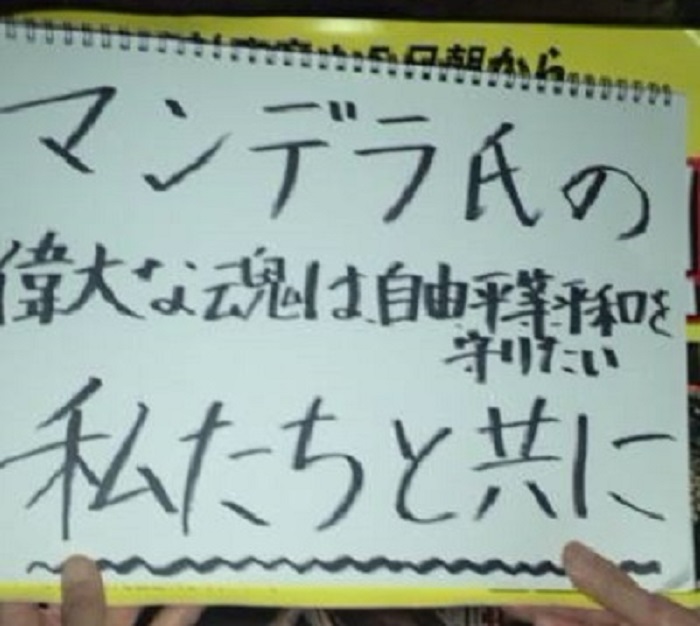 日朝から
マンデラ氏の
偉大な魂は自由平等平和を
守りたい
私たちと共に